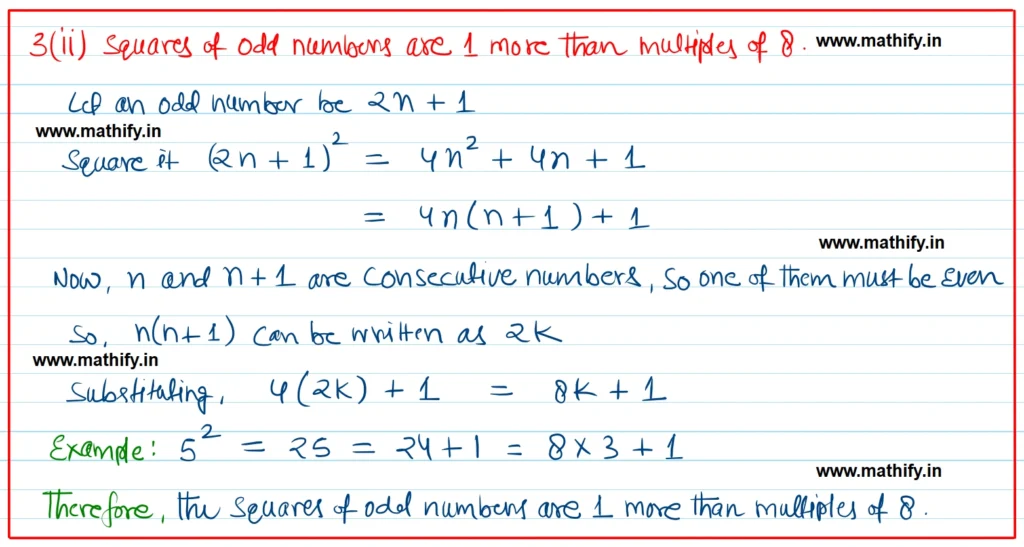 3(ii) Squares of odd numbers are 1 more than multiples of 8. www.mathify.in
Let an odd number be 2n + 1
www.mathify.in
Square it (2n + 1)² = 4n² + 4n + 1
= 4n(n + 1) + 1
www.mathify.in
Now, n and n + 1 are consecutive numbers, so one of them must be even
So, n(n + 1) can be written as 2k
www.mathify.in
Substituting, 4(2k) + 1 = 8k + 1
Example: 5² = 25 = 24 + 1 = 8 × 3 + 1
www.mathify.in
Therefore, the squares of odd numbers are 1 more than multiples of 8.